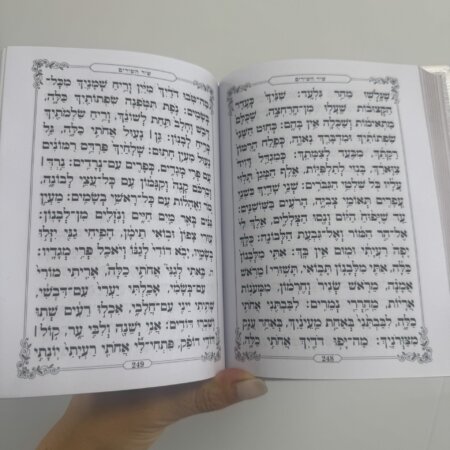 שיר השירים
שֶׁגָּלְשׁוּ מֵהַר גִּלְעָד: שִׁנַּיִךְ כְּעֵדֶר
הַקְּצוּבוֹת שֶׁעָלוּ מִן־הָרַחְצָה, שֶׁכֻּלָּם
מַתְאִימוֹת וְשַׁכֻּלָה אֵין בָּהֶם: כְּחוּט הַשָּׁנִי
שִׂפְתוֹתַיִךְ וּמִדְבָּרֵךְ נָאוֶה, כְּפֶלַח הָרִמּוֹן
רַקָּתֵךְ, מִבַּעַד לְצַמָּתֵךְ: כְּמִגְדַּל דָּוִיד
צַוָּארֵךְ, בָּנוּי לְתַלְפִּיּוֹת, אֶלֶף הַמָּגֵן תָּלוּי
עָלָיו כֹּל שִׁלְטֵי הַגִּבֹּרִים: שְׁנֵי שָׁדַיִךְ כִּשְׁנֵי
עֳפָרִים תְּאוֹמֵי צְבִיָּה, הָרֹעִים בַּשּׁוֹשַׁנִּים:
עַד שֶׁיָּפוּחַ הַיּוֹם וְנָסוּ הַצְּלָלִים, אֵלֶךְ לִי
אֶל־הַר הַמּוֹר וְאֶל־גִּבְעַת הַלְּבוֹנָה: כֻּלָּךְ
יָפָה רַעְיָתִי וּמוּם אֵין בָּךְ: אִתִּי מִלְּבָנוֹן
כַּלָּה, אִתִּי מִלְּבָנוֹן תָּבוֹאִי, תָּשׁוּרִי מֵרֹאשׁ
אֲמָנָה, מֵרֹאשׁ שְׂנִיר וְחֶרְמוֹן, מִמְּעֹנוֹת
אֲרָיוֹת, מֵהַרְרֵי נְמֵרִים: לִבַּבְתִּנִי אֲחֹתִי
כַלָּה, לִבַּבְתִּנִי בְּאַחַת מֵעֵינַיִךְ, בְּאַחַד עֲנָק
מִצַּוְּרֹנָיִךְ: מַה־יָּפוּ דֹדַיִךְ אֲחֹתִי כַלָּה,
248
שיר השירים
מַה־טֹּבוּ דֹדַיִךְ מִיַּיִן וְרֵיחַ שְׁמָנַיִךְ מִכָּל־
בְּשָׂמִים: נֹפֶת תִּטֹּפְנָה שִׂפְתוֹתַיִךְ כַּלָּה,
דְּבַשׁ וְחָלָב תַּחַת לְשׁוֹנֵךְ, וְרֵיחַ שַׂלְמֹתַיִךְ
כְּרֵיחַ לְבָנוֹן: גַּן | נָעוּל אֲחֹתִי כַלָּה, גַּל
נָעוּל מַעְיָן חָתוּם: שְׁלָחַיִךְ פַּרְדֵּס רִמּוֹנִים
עִם פְּרִי מְגָדִים, כְּפָרִים עִם־נְרָדִים: נֵרְדְּ |
וְכַרְכֹּם קָנֶה וְקִנָּמוֹן עִם כָּל־עֲצֵי לְבוֹנָה,
מֹר וַאֲהָלוֹת עִם כָּל־רָאשֵׁי בְשָׂמִים: מַעְיַן
גַּנִּים בְּאֵר מַיִם חַיִּים וְנֹזְלִים מִן־לְבָנוֹן:
עוּרִי צָפוֹן וּבוֹאִי תֵימָן, הָפִיחִי גַנִּי יִזְּלוּ
בְשָׂמָיו, יָבֹא דוֹדִי לְגַנּוֹ וְיֹאכַל פְּרִי מְגָדָיו:
בָּאתִי לְגַנִּי אֲחֹתִי כַלָּה, אָרִיתִי מוֹרִי
עִם־בְּשָׂמִי, אָכַלְתִּי יַעְרִי עִם־דִּבְשִׁי,
שָׁתִיתִי יֵינִי עִם־חֲלָבִי, אִכְלוּ רֵעִים שְׁתוּ
וְשִׁכְרוּ דּוֹדִים: אֲנִי יְשֵׁנָה וְלִבִּי עֵר, קוֹל |
דּוֹדִי דוֹפֵק, פִּתְחִי־לִי אֲחֹתִי רַעְיָתִי יוֹנָתִי
249